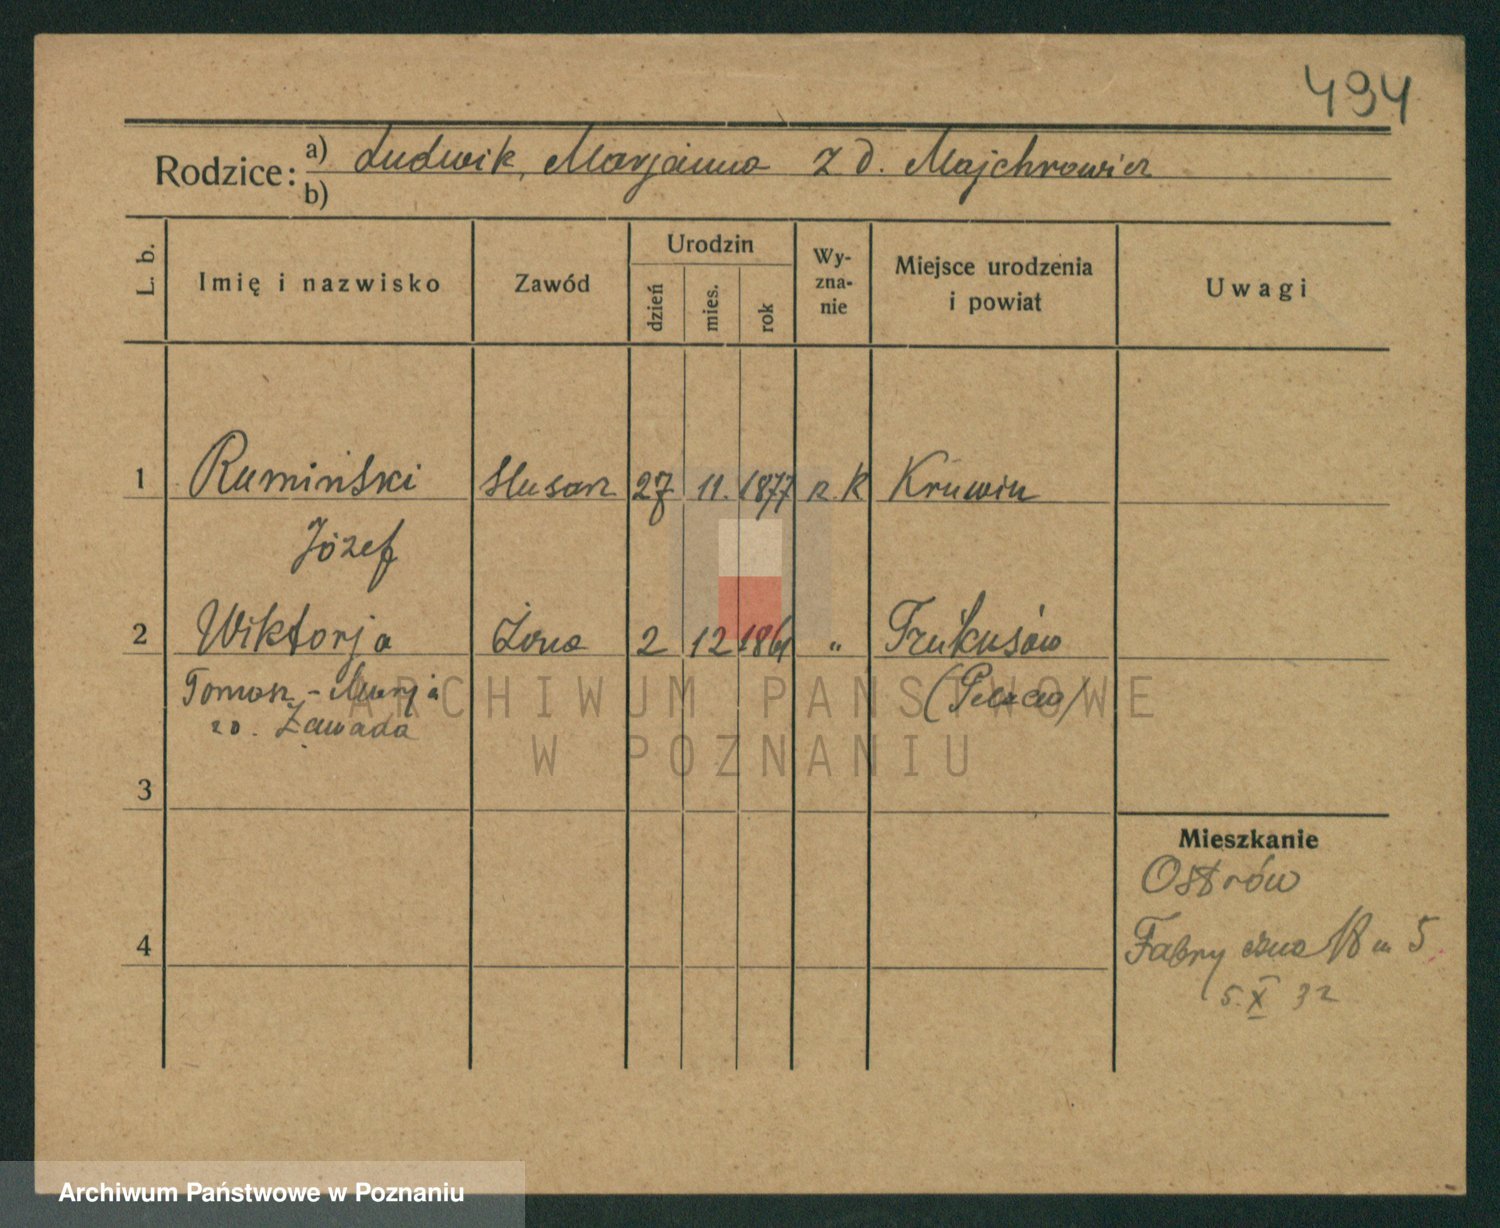 494
Rodzice: a) Ludwik, Marjanna z d. Majchrowicz
b)
L. b.
Imię i nazwisko
Zawód
Urodzin
dzień
mies.
rok
Wy-
zna-
nie
Miejsce urodzenia
i powiat
Uwagi
1 Rumiński ślusarz 27 11. 1877 r. k
Józef
2 Wiktorja Żona 2 12 „
Tomasz - Marja
zd. Zawada
ARCHIWUM PAŃSTWOWE
W POZNANIU
3
Mieszkanie
Ostrów
4
Fabryczna 18 m 5
5. X 32
Archiwum Państwowe w Poznaniu